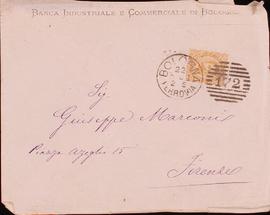 Banca Industriale e Commerciale di Bologna
BOLOGNA
22
2 S
FERROVIA
172
Sig
Giuseppe Marconi
Piazza Azeglio 15
Firenze